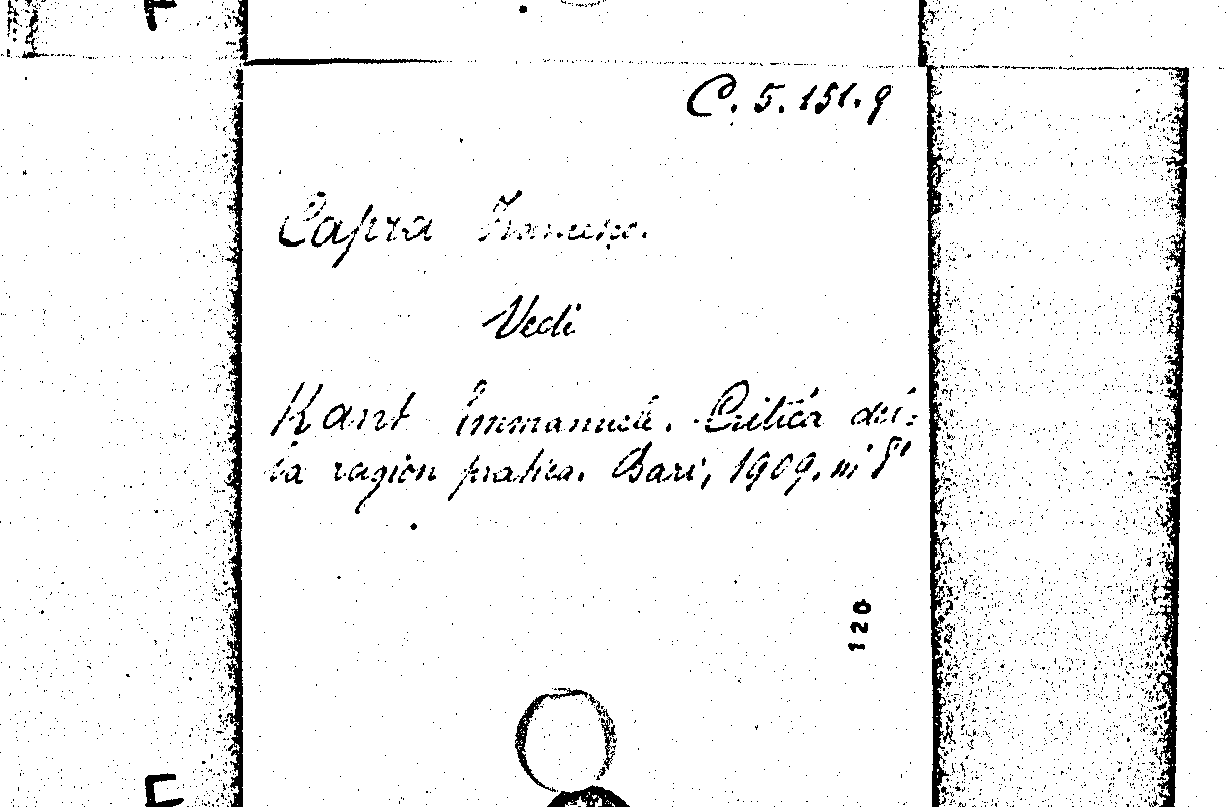 C. 5. 151. 9
Capra Francesco.
Vedi
Kant Emmanuele. Critica del=
la ragion pratica. Bari, 1909. in 8°
120
F
F